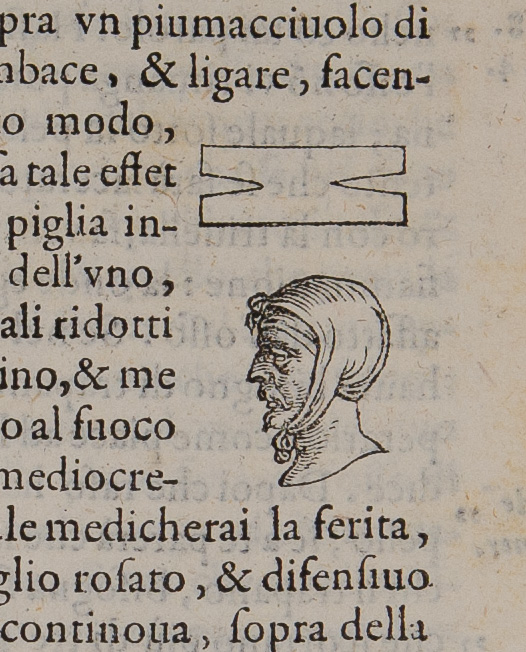 pra vn piumacciuolo di
mbace, & ligare, facen-
o modo,
ſa tale effet
piglia in-
dell'vno,
ali ridotti
ino,& me
o al fuoco
mediocre-
le medicherai la ferita,
glio roſato, & difenſiuo
continoua, ſopra della